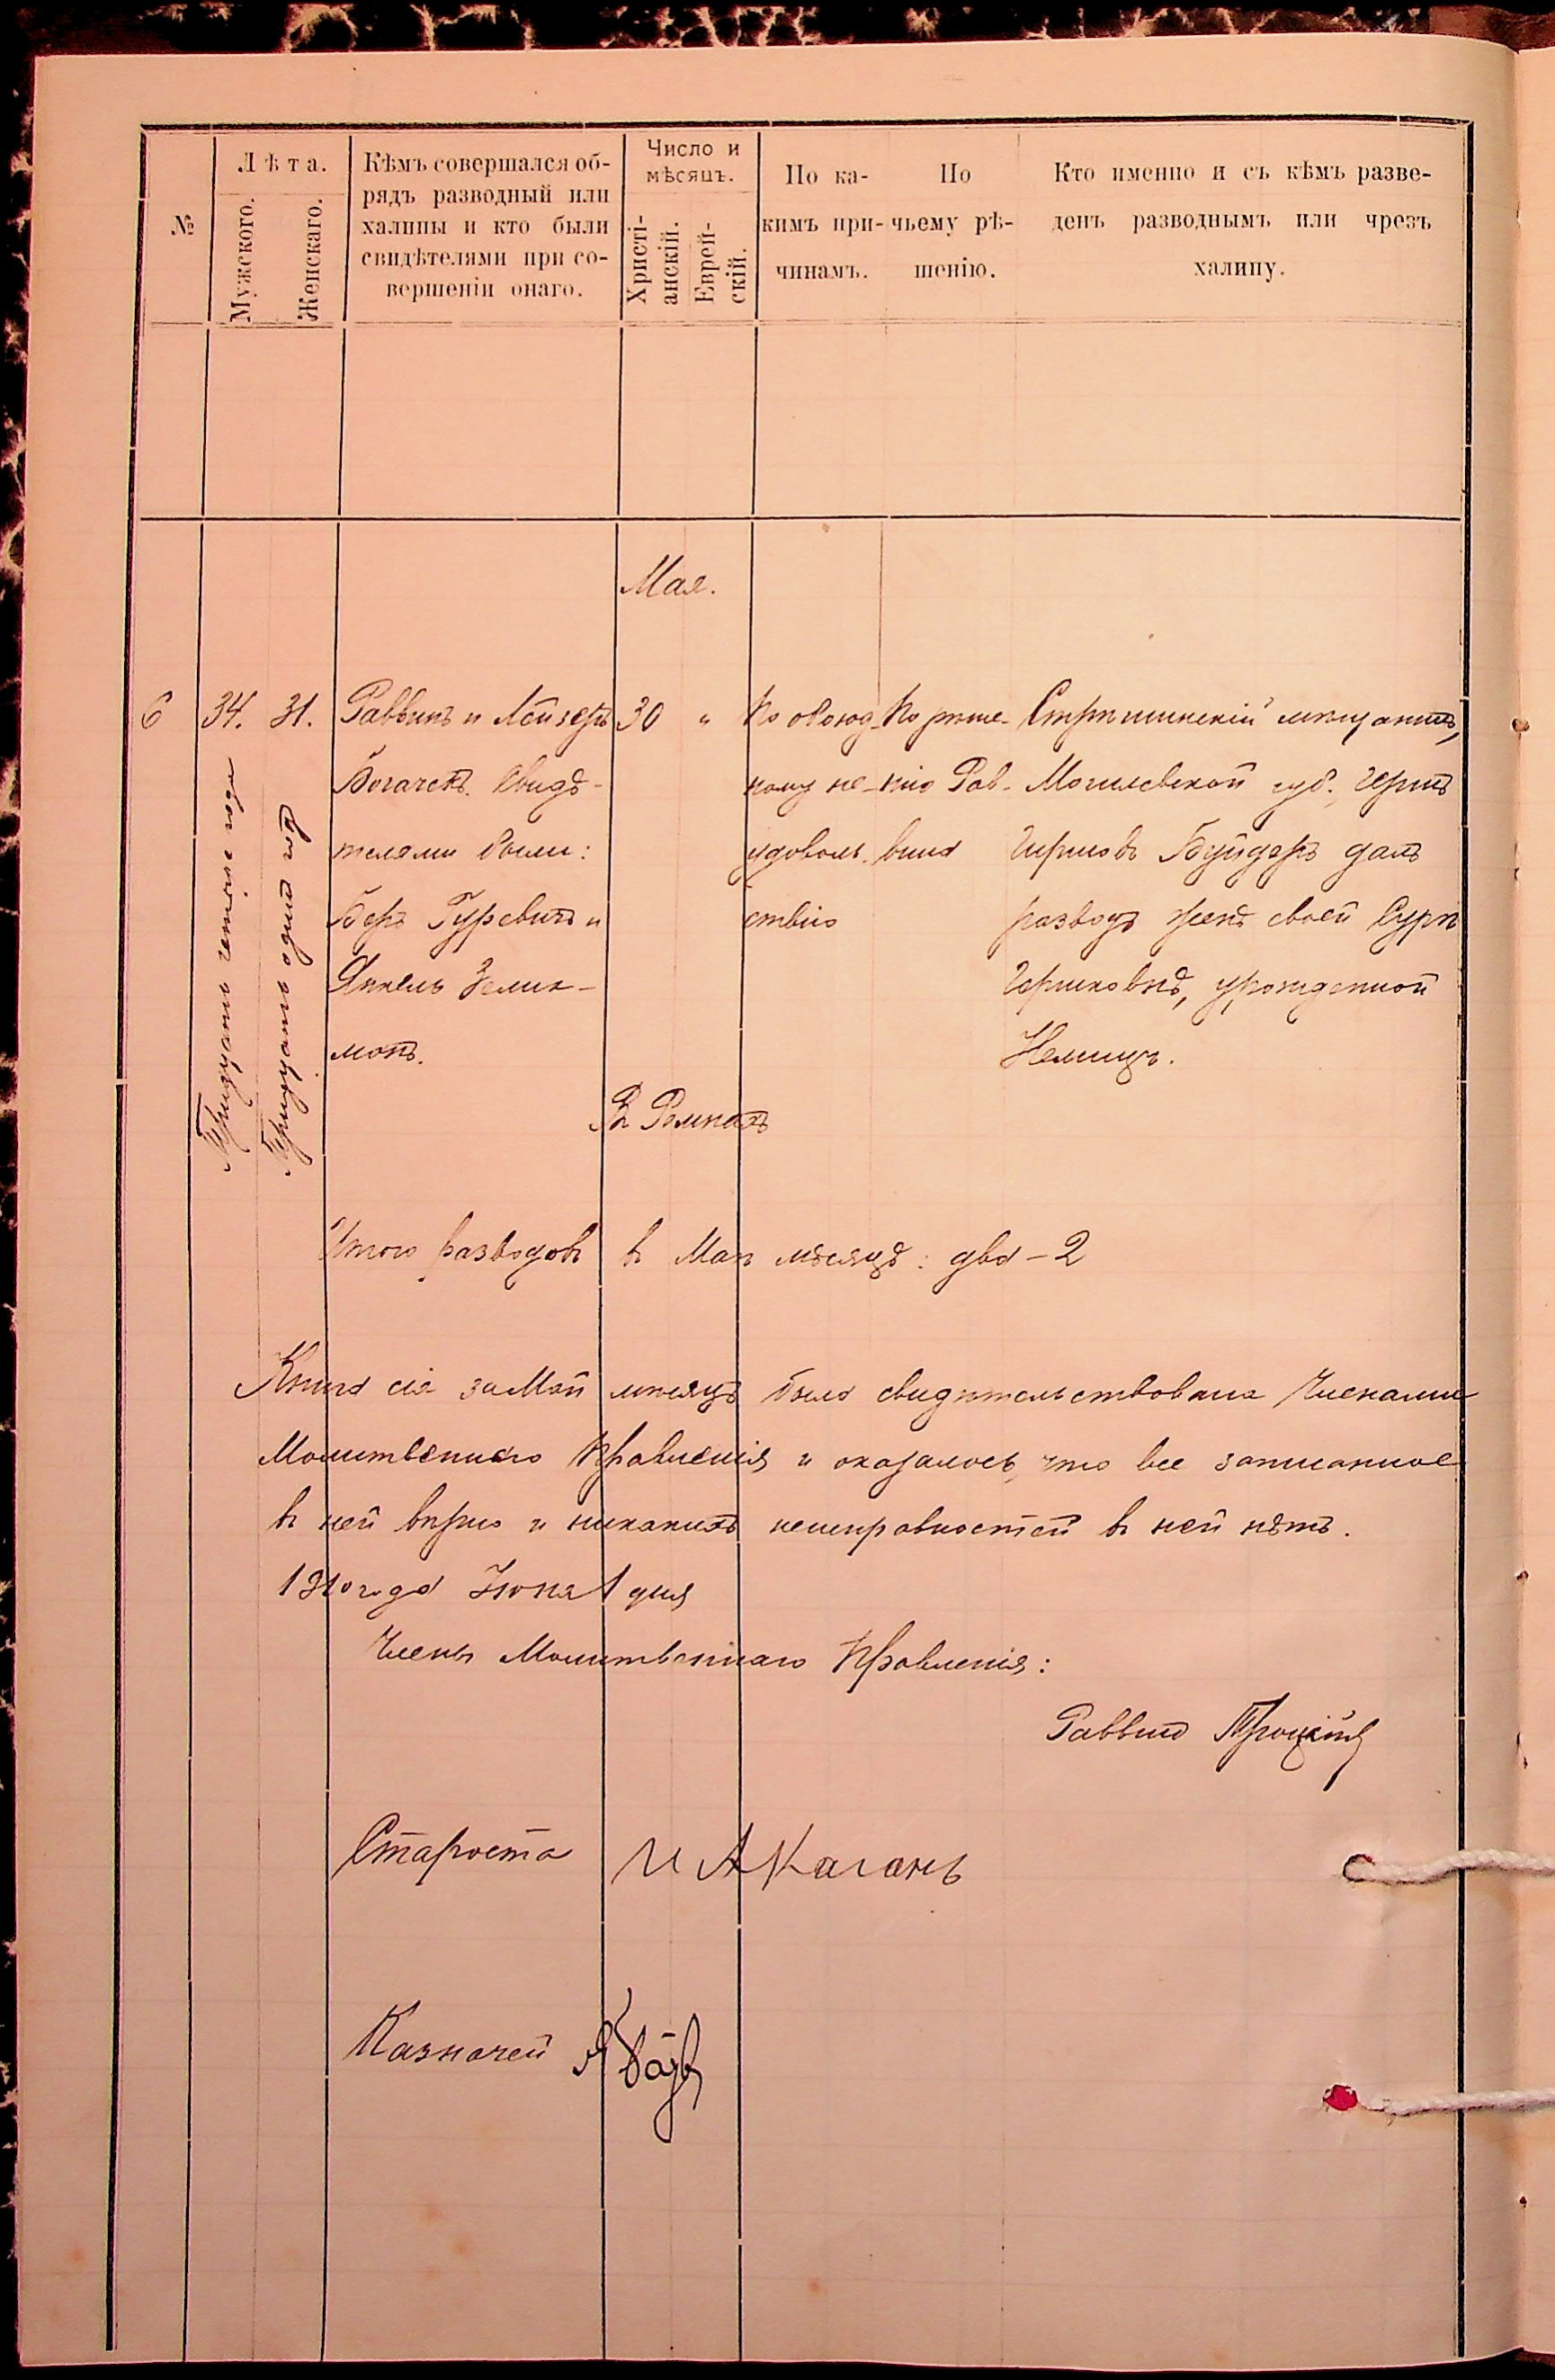 №
Лѣта.
Мужского.
Женскаго.
Кѣмъ совершался об-
рядъ разводный или
халицы и кто были
свидѣтелями при со-
вершеніи онаго.
Число и
мѣсяцъ.
Христі-
анскій.
Еврей-
скій.
По ка-
кимъ при-
чинамъ.
По
чьему рѣ-
шенію.
Кто именно и съ кѣмъ разве-
денъ разводнымъ или чрезъ
халицу.
Мая.
6
34.
Тридцать четыре года
31.
Тридцать одинъ годъ
Раввинъ и Лейзеръ
Богачекъ. Свидѣ-
телями были:
Беръ Гуревичъ и
Янкель Зелик-
манъ.
30
"
По обоюд-
ному не-
удоволь-
ствію
По рѣше-
нію Рав-
вина
Стрѣшинскій мѣщанинъ,
Могилевской губ., Гершъ
Гиршовъ Буйдеръ далъ
разводъ женѣ своей Сурѣ
Гершковнѣ, урожденной
Немицъ.
Въ Ромнахъ
Итого разводовъ въ Маѣ мѣсяцѣ: два - 2
Книга сія за Май мѣсяцъ была свидѣтельствована Членами
Молитвеннаго Правленія и оказалось, что все записанное
въ ней вѣрно и никакихъ неисправностей въ ней нѣтъ.
1910 года Іюня 1 дня
Члены Молитвеннаго Правленія:
Раввинъ Троцкій
Староста И А Каганъ
Казначей